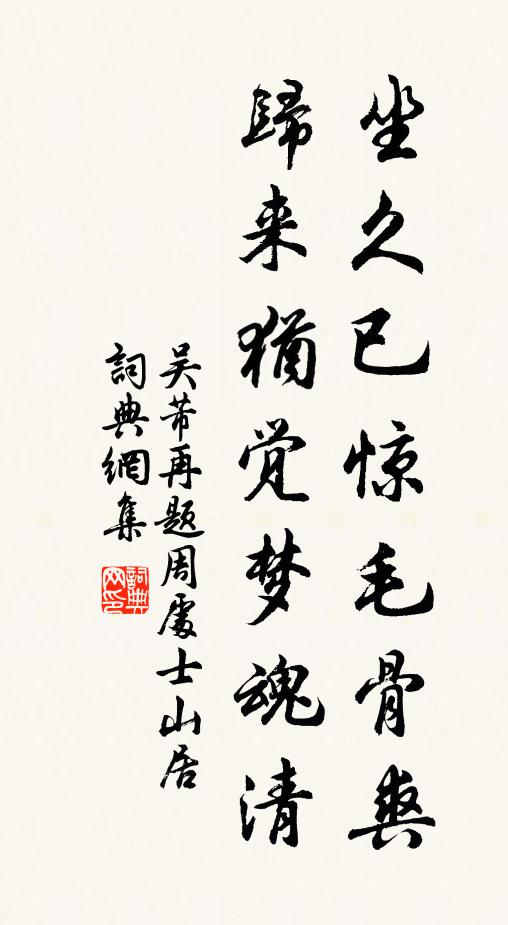 坐久已惊毛骨爽
歸来猶觉梦魂清
吴芾再题周處士山居
詞典網集
詞典网印